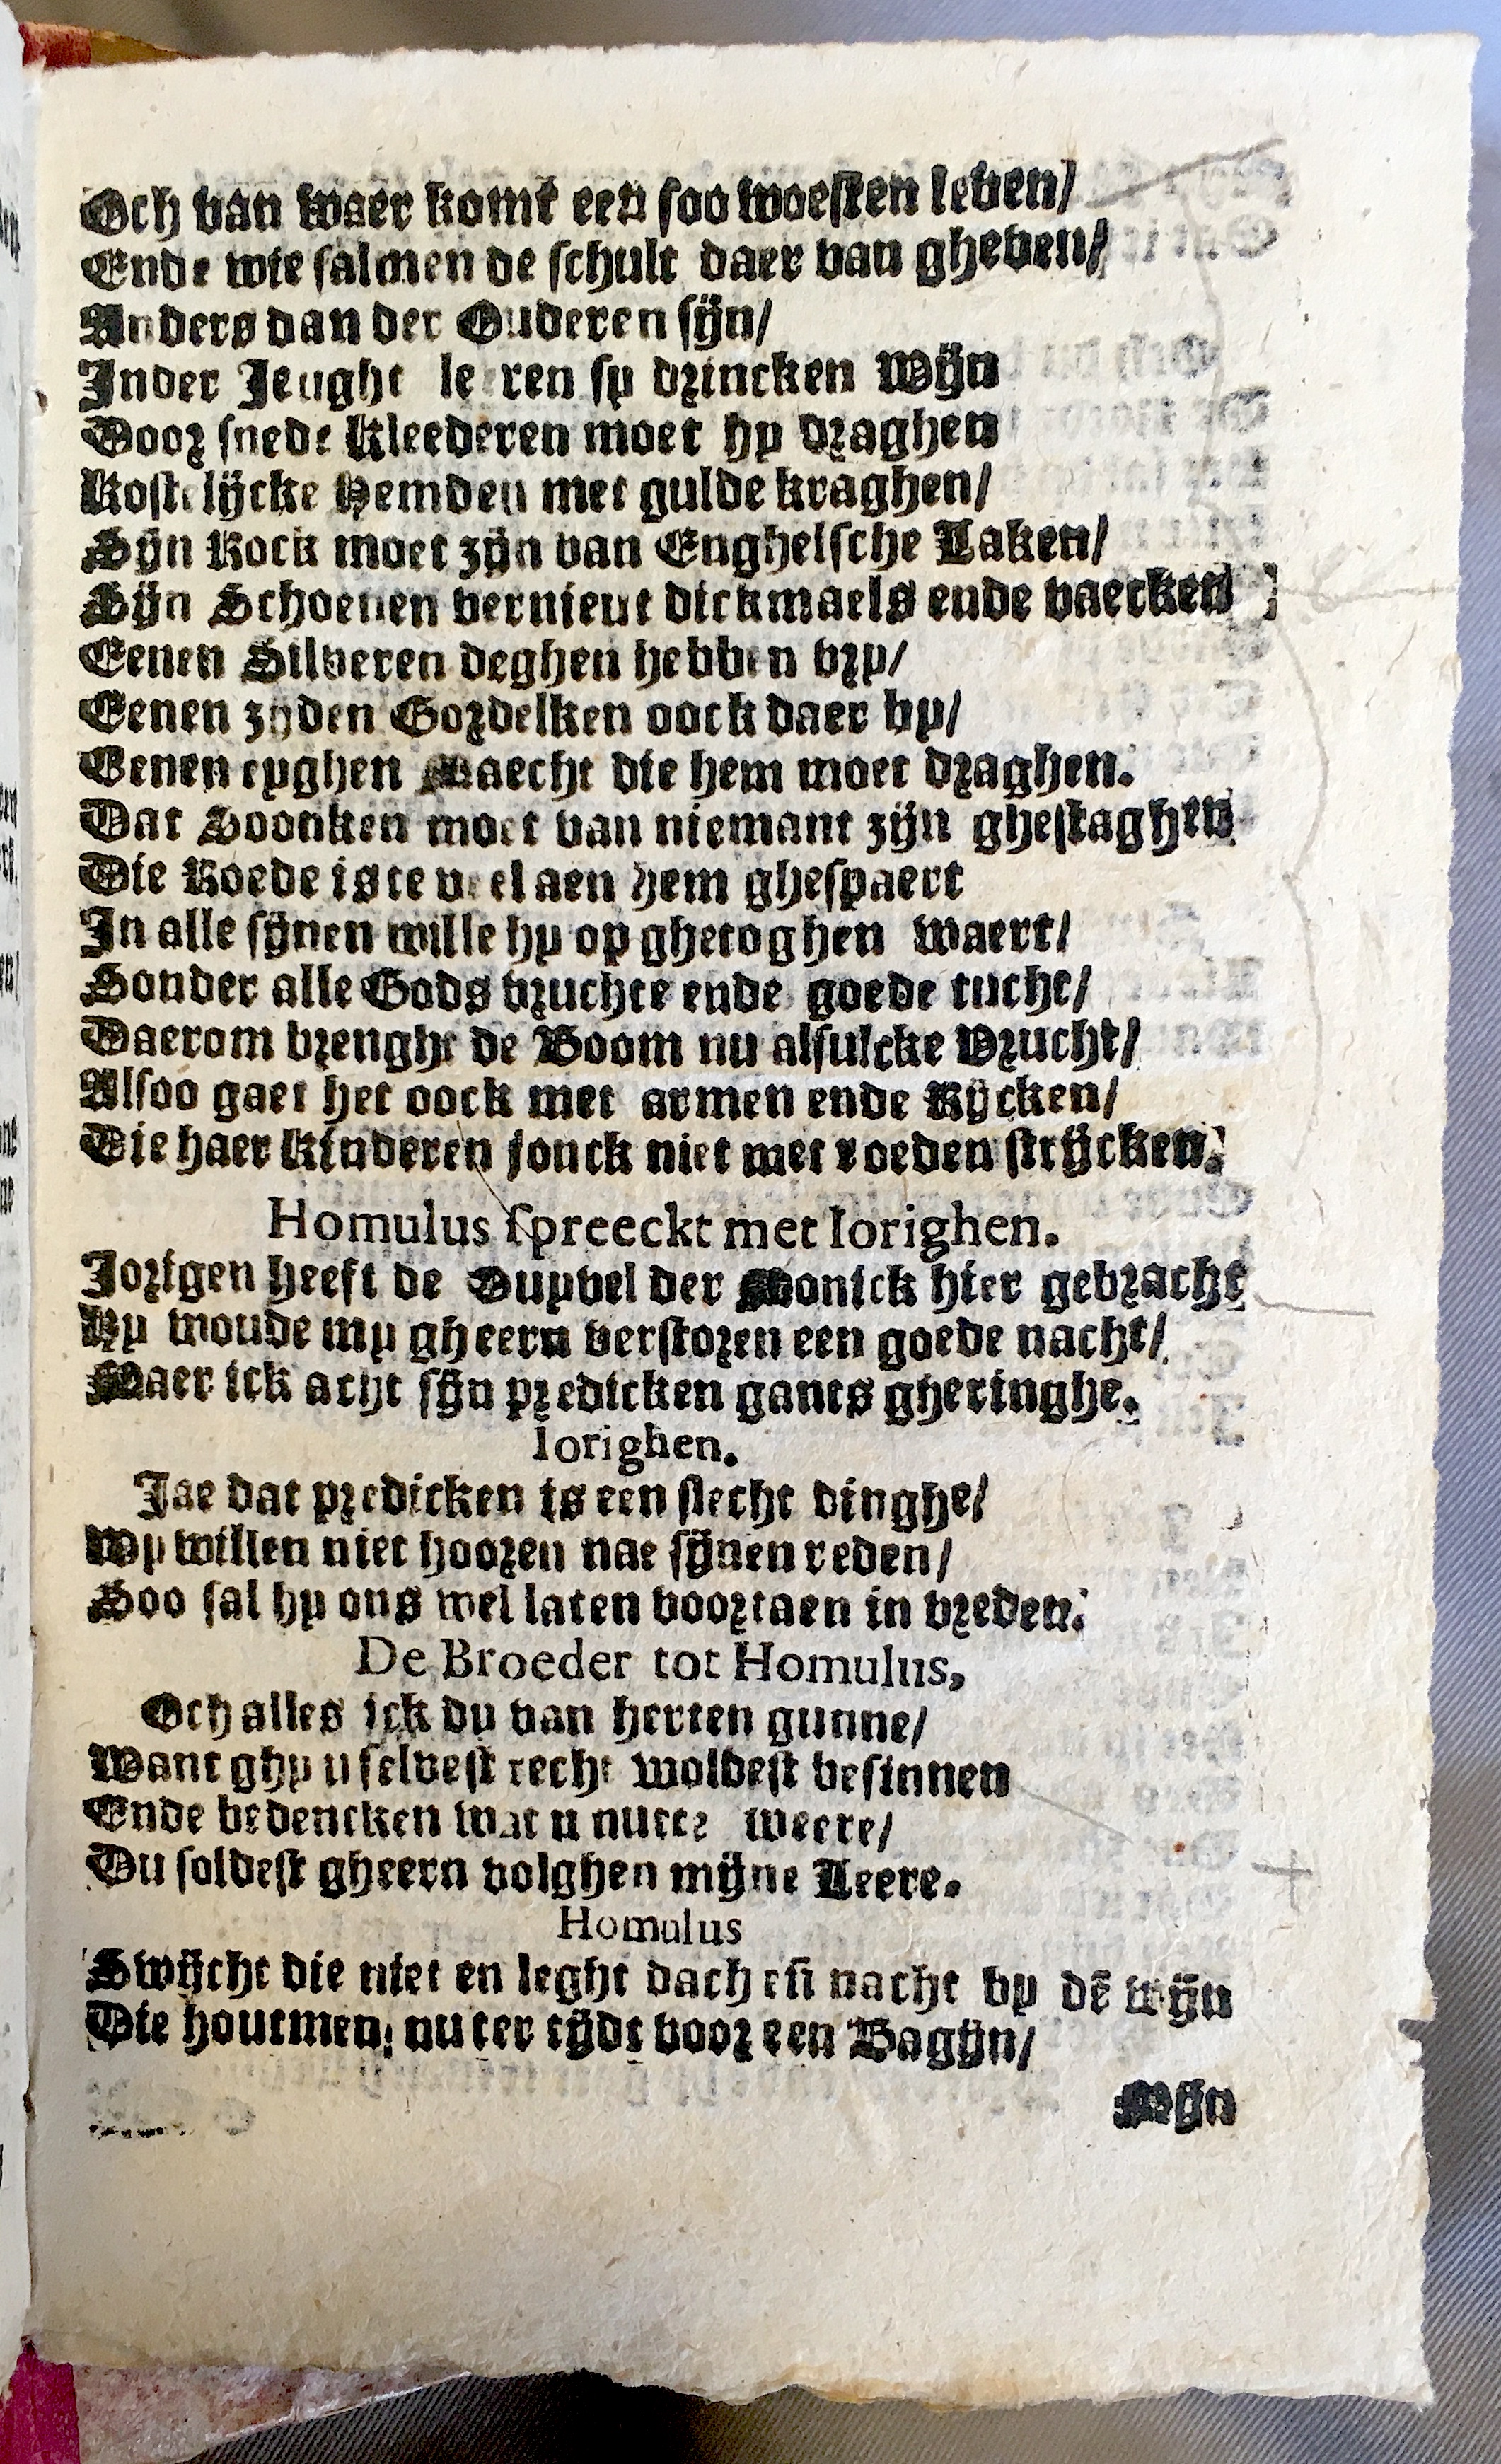 Och van waer komt een soo woesten leven/
Ende wie salmen de schult daer van gheven/
Anders dan der Ouderen sijn/
Inder Jeught leeren sy drincken Wijn
Door snede Kleederen moet hy draghen
Kostelijcke Hemden met gulde kraghen/
Sijn Rock moet zijn van Enghelsche Laken/
Sijn Schoenen vernieut dickmaels ende vaecken
Eenen Silveren deghen hebben vry/
Eenen zyden Gordelken oock daer by/
Eenen eyghen Maecht die hem moet draghen.
Dat Soonken moet van niemant zijn gheslaghen
Die Roede is te veel aen hem ghespaert
In alle sijnen wille hy op ghetoghen waert/
Sonder alle Gods vruchte ende goede tucht/
Daerom brenght de Boom nu alsulcke Vrucht/
Alsoo gaet het oock met armen ende Rijcken/
Die haer Kinderen jonck niet met roeden strijcken.
Homulus spreeckt met Iorighen.
Jorigen heeft de Duyvel der Monick hier gebracht
Hy woude my gheern verstoren een goede nacht/
Maer ick acht sijn predicken gants gheringhe.
Iorighen.
Jae dat predicken is een slecht dinghe/
Wy willen niet hooren nae sijnen reden/
Soo sal hy ons wel laten voortaen in vreden.
De Broeder tot Homulus,
Och alles ick du van herten gunne/
Want ghy u selvest recht woldest besinnen
Ende bedencken wat u nutte weere/
Du soldest gheern volghen mijne Leere.
Homulus
Swijcht die niet en leght dach eñ nacht by dē wijn
Die houtmen nu ter tijdt voor een Bagijn/
Mijn